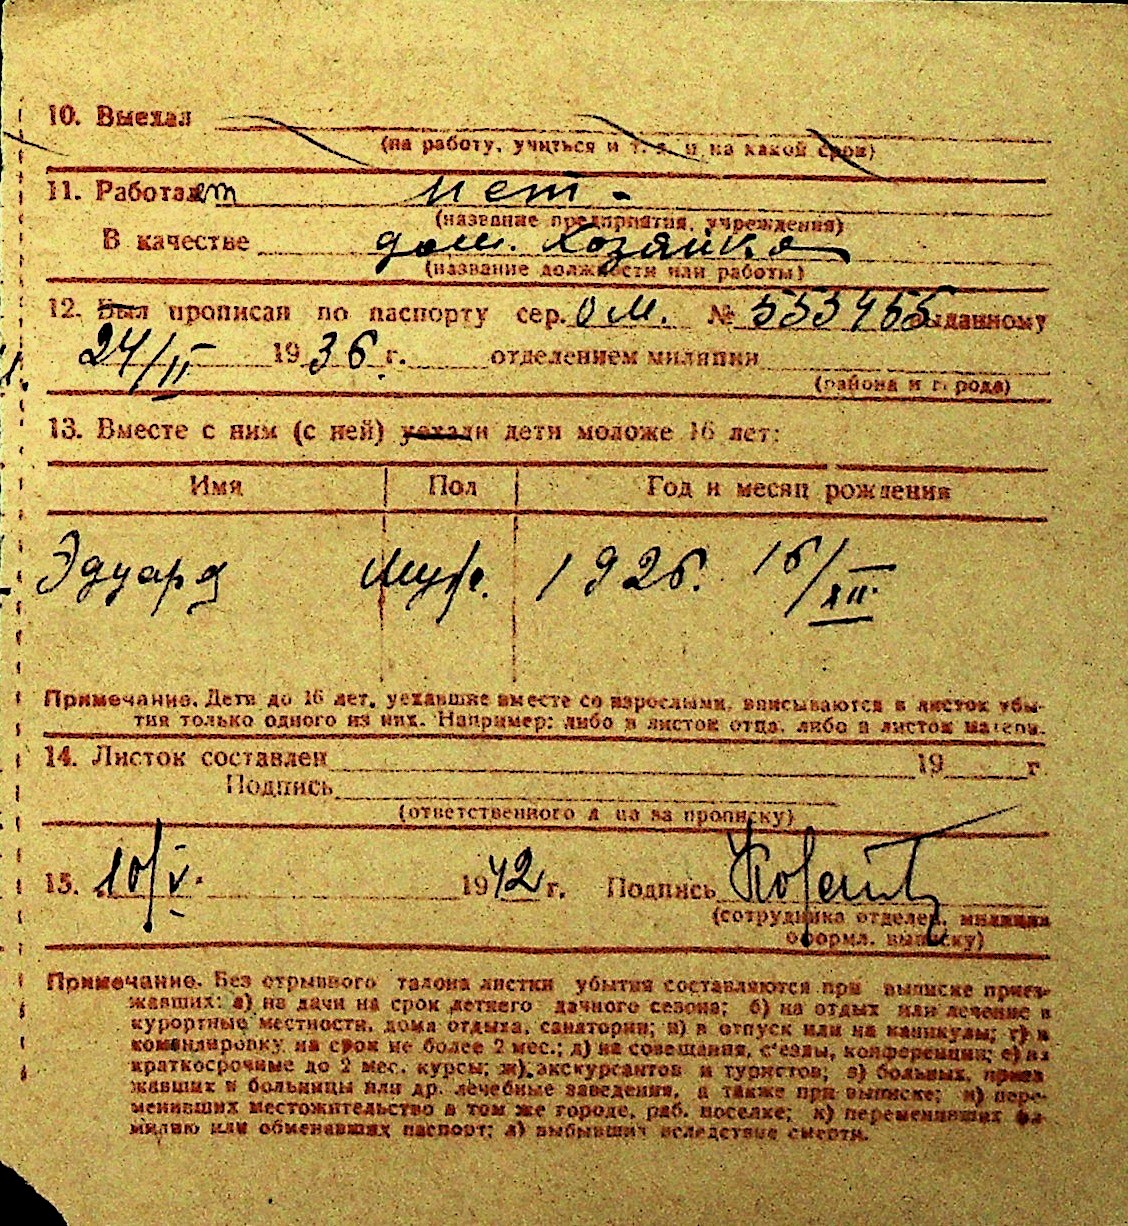 10. Выехал
(на работу, учиться и т. д. и на какой срок)
11. Работает нет -
(название предприятия, учреждения)
В качестве дом. хозяйка
(название должности или работы)
12. Был прописан по паспорту сер. ОМ. № 553455 выданному
24/II 1936 г. отделением милиции
(района и города)
13. Вместе с ним (с ней) уехали дети моложе 16 лет:
Имя Пол Год и месяц рождения
Эдуард Муж. 1926. 16/XII.
Примечание. Дети до 16 лет, уехавшие вместе со взрослыми, вписываются в листок убы-
тия только одного из них. Например: либо в листок отца, либо в листок матери.
14. Листок составлен 19 г
Подпись
(ответственного лица за прописку)
15. 10/V. 1942 г. Подпись
(сотрудника отделен. милиции
оформл. выписку)
Примечание. Без отрывного талона листки убытия составляются при выписке приез-
жавших: а) на дачи на срок летнего дачного сезона; б) на отдых или лечение в
курортные местности, дома отдыха, санатории; в) в отпуск или на каникулы; г) в
командировку на срок не более 2 мес.; д) на совещания, с'езды, конференции; е) на
краткосрочные до 2 мес. курсы; ж) экскурсантов и туристов; з) больных, приез
жавших в больницы или др. лечебные заведения, а также при выписке; и) пере-
менивших местожительство в том же городе, раб. поселке; к) переменивших фа-
милию или обменявших паспорт; л) выбывших вследствие смерти.